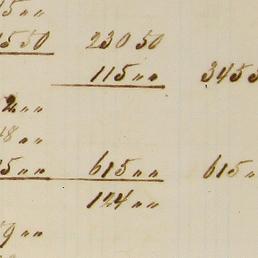 5 " "
1550 230 50
115 " " 3455
2 " "
48 " "
5 " " 615 " " 615 "
124 " "
9 " "